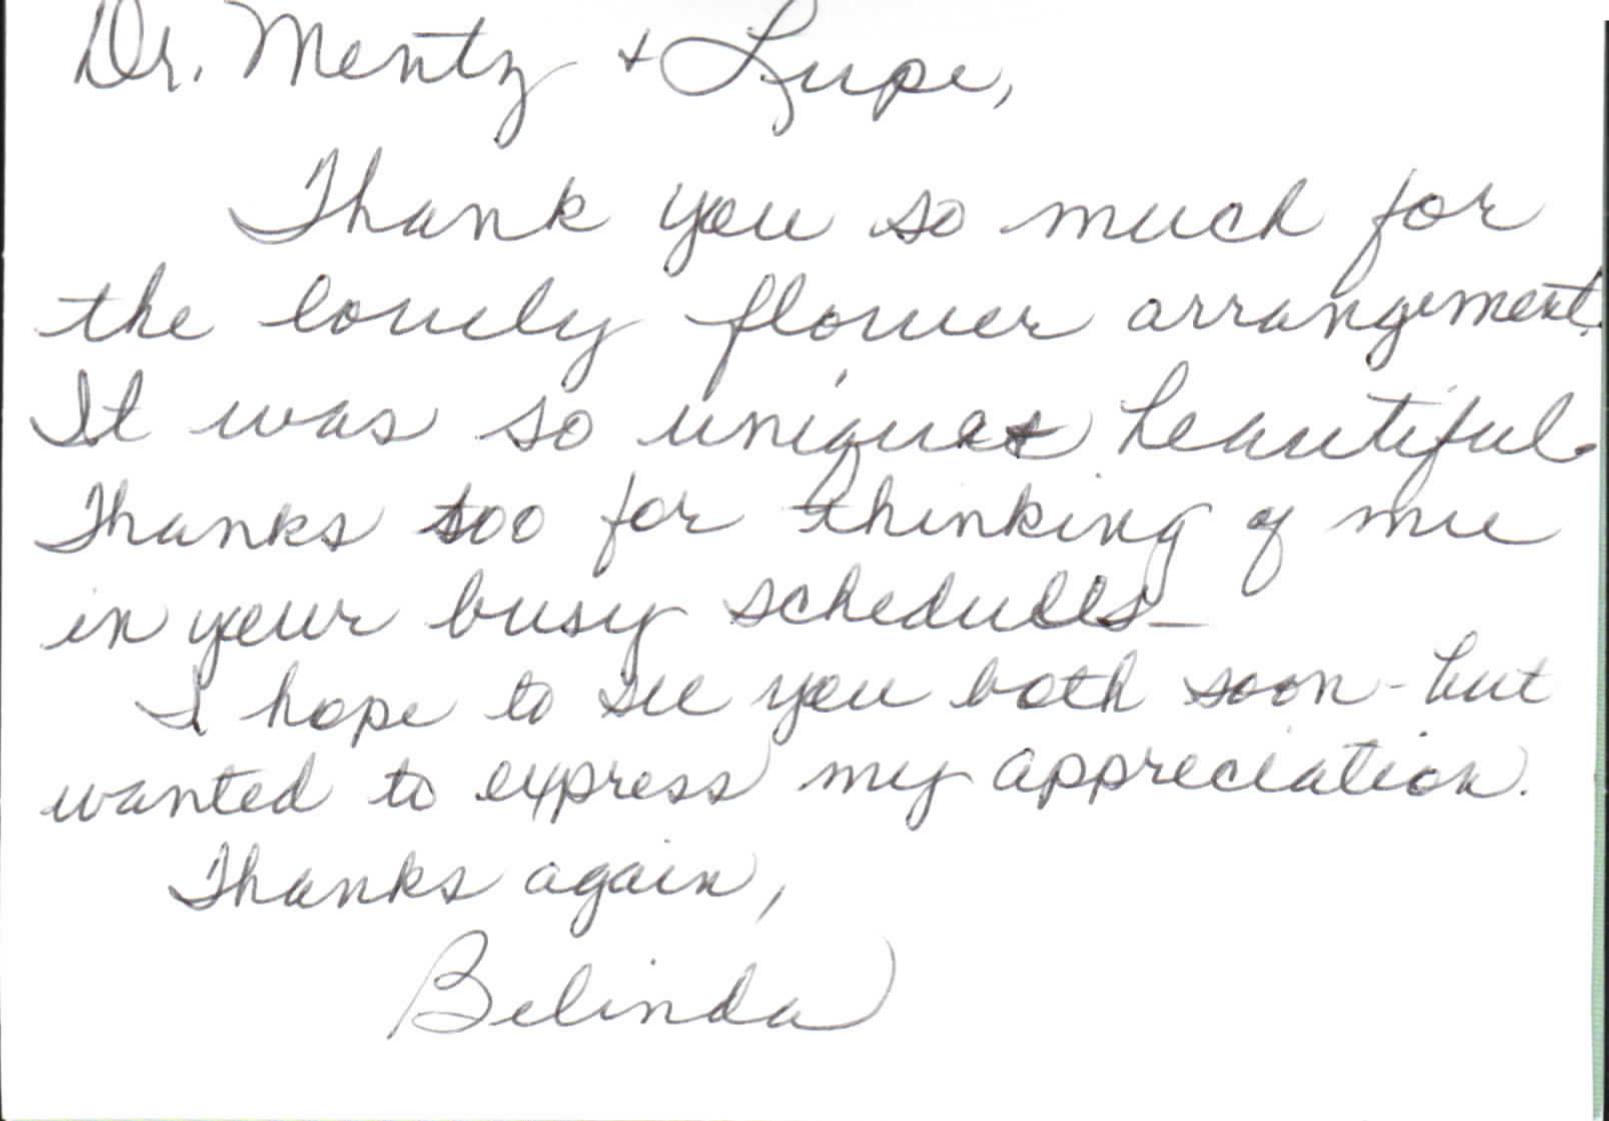 Dr. Mentz + Lupe,
Thank you so much for
the lovely flower arrangement.
It was so unique + beautiful.
Thanks too for thinking of me
in your busy schedules-
I hope to see you both soon - but
wanted to express my appreciation.
Thanks again,
Belinda